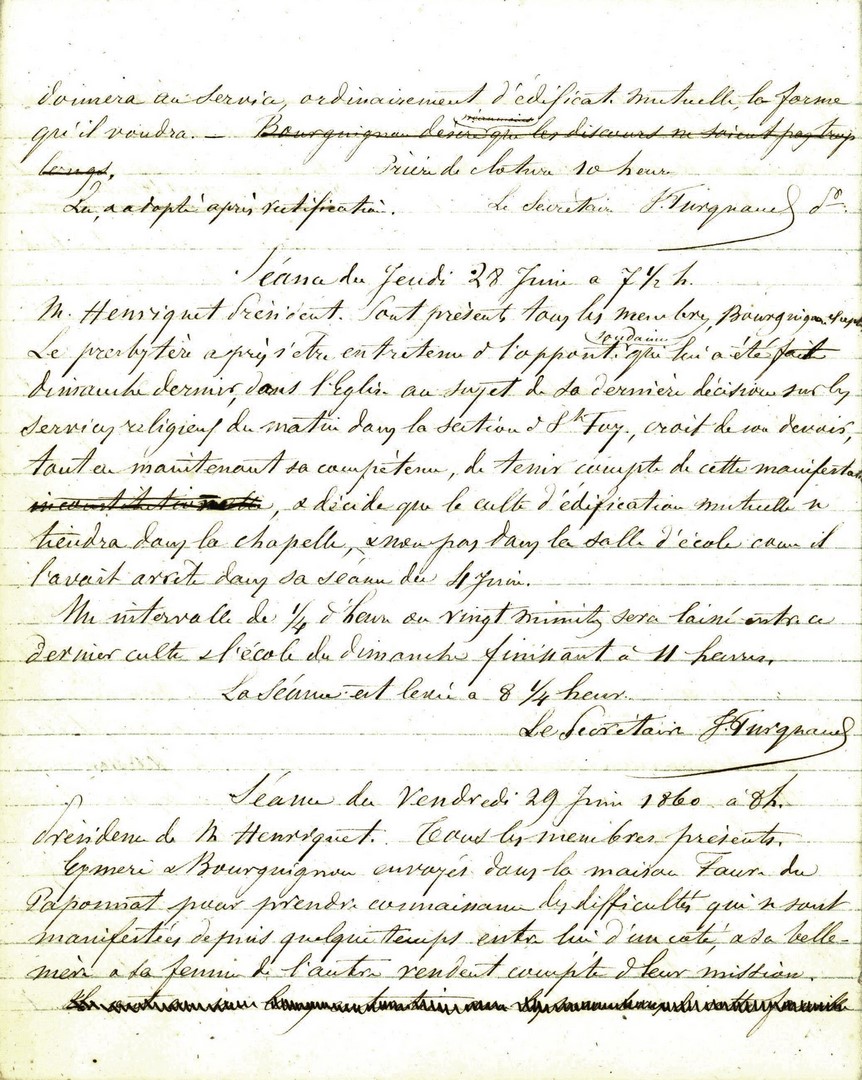 donnera au service, ordinairement d'édificat. mutuelle, la forme
qu'il voudra. — Bourguignon désire néanmoins que les discours ne soient pas trop
longs. Prière de cloture 10 heures
Lu, & adopté après rectification. Le Secrétaire J. Turgnaud
Séance du Jeudi 28 Juin a 7 1/2 h.
M. Henriquet Président. Sont présents tous les membres, Bourguignon
Le presbytère après s'être entretenu d l'opposit. que lui a été fait
dimanche dernier, dans l'Eglise au sujet de sa dernière décision sur les
services religieux du matin dans la section d Ste Foy, croit de son devoir,
tout en maintenant sa compétence, de tenir compte de cette manifestation
inconstitutionnelle, & décide que le culte d'édification mutuelle se
tiendra dans la chapelle, & non pas dans la salle d'école comme il
l'avait arrêté dans sa séance du 4 Juin.
Un intervalle de 1/4 d'heure ou vingt minutes sera laissé entre ce
dernier culte & l'école du dimanche finissant à 11 heures.
La Séance est levée a 8 1/4 heures.
Le Secrétaire J. Turgnaud
Séance du Vendredi 29 Juin 1860 à 8h.
Présidence de M Henriquet. Tous les membres présents.
Eymeri & Bourguignon envoyés dans la maison Faure du
Paponnat pour prendre connaissance des difficultés qui se sont
manifestées depuis quelque temps entre lui d'un coté, & sa belle-
mère & sa femme de l'autre rendent compte d leur mission.